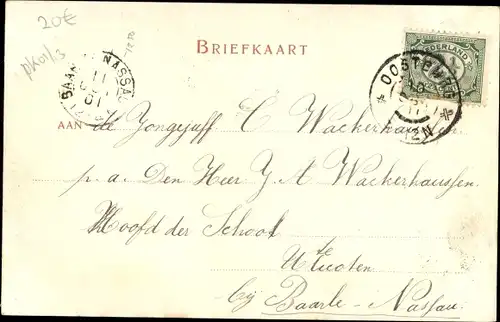 20€
pk01/3
BRIEFKAART
NEDERLAND
BAARLE NASSAU
11
01
OOSTERWIJK
12N
AAN de Jongejuff C Wackerhaussen
p. a. Den Heer J A Wackerhaussen.
Hoofd der School
te
Ulicoten
bij Baarle-Nassau.